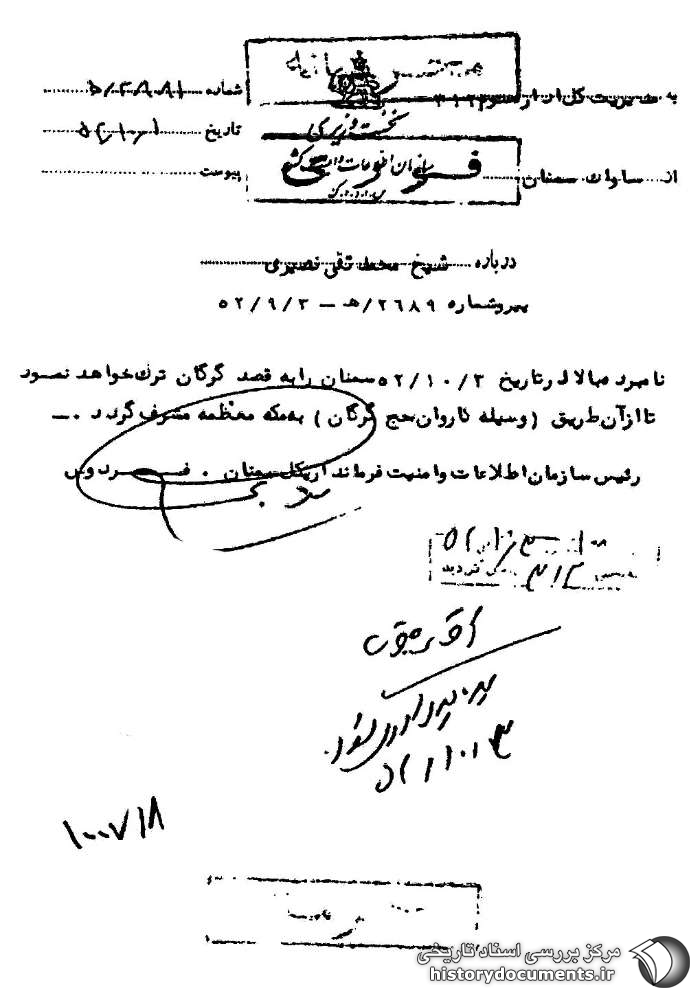 به مدیریت کل اداره سوم ۳۱۲
نخست وزیری
سازمان اطلاعات و امنیت کشور
از ساواک سمنان
شماره ۲۸۸۱/ه
تاریخ ۵۲/۱۰/۱
پیوست
درباره شیخ محمد تقی نصیری
پیرو شماره ۲۶۸۹/ه – ۵۲/۹/۳
نامبرده بالا در تاریخ ۵۲/۱۰/۳ سمنان را به قصد گرگان ترک خواهد نمود
تا از آن طریق (وسیله کاروان حج گرگان) به مکه معظمه مشرف گردد .ـ
رئیس سازمان اطلاعات و امنیت فرمانداریکل سمنان . فردوس
۳۱۲
گردید
۵۲/۱۰/۳
۱۰۰۷۱۸
مرکز بررسی اسناد تاریخی
historydocuments.ir